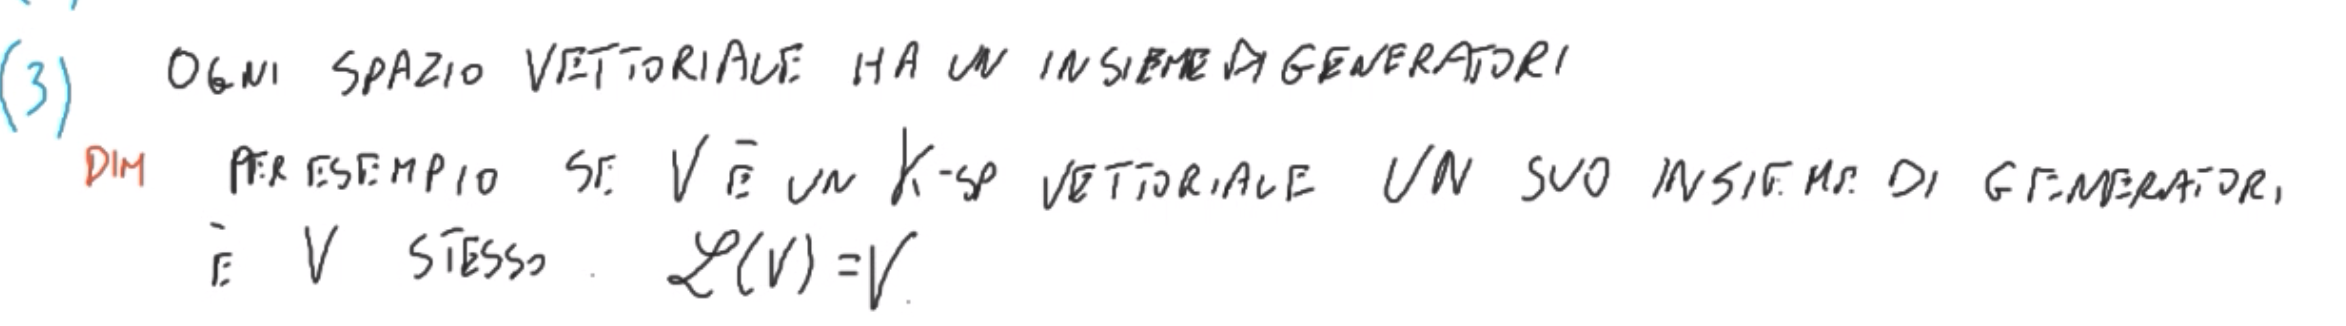 (3) OGNI SPAZIO VETTORIALE HA UN INSIEME DI GENERATORI
DIM PER ESEMPIO SE V È UN K-SP VETTORIALE UN SUO INSIEME DI GENERATORI
È V STESSO. ℒ(V)=V.